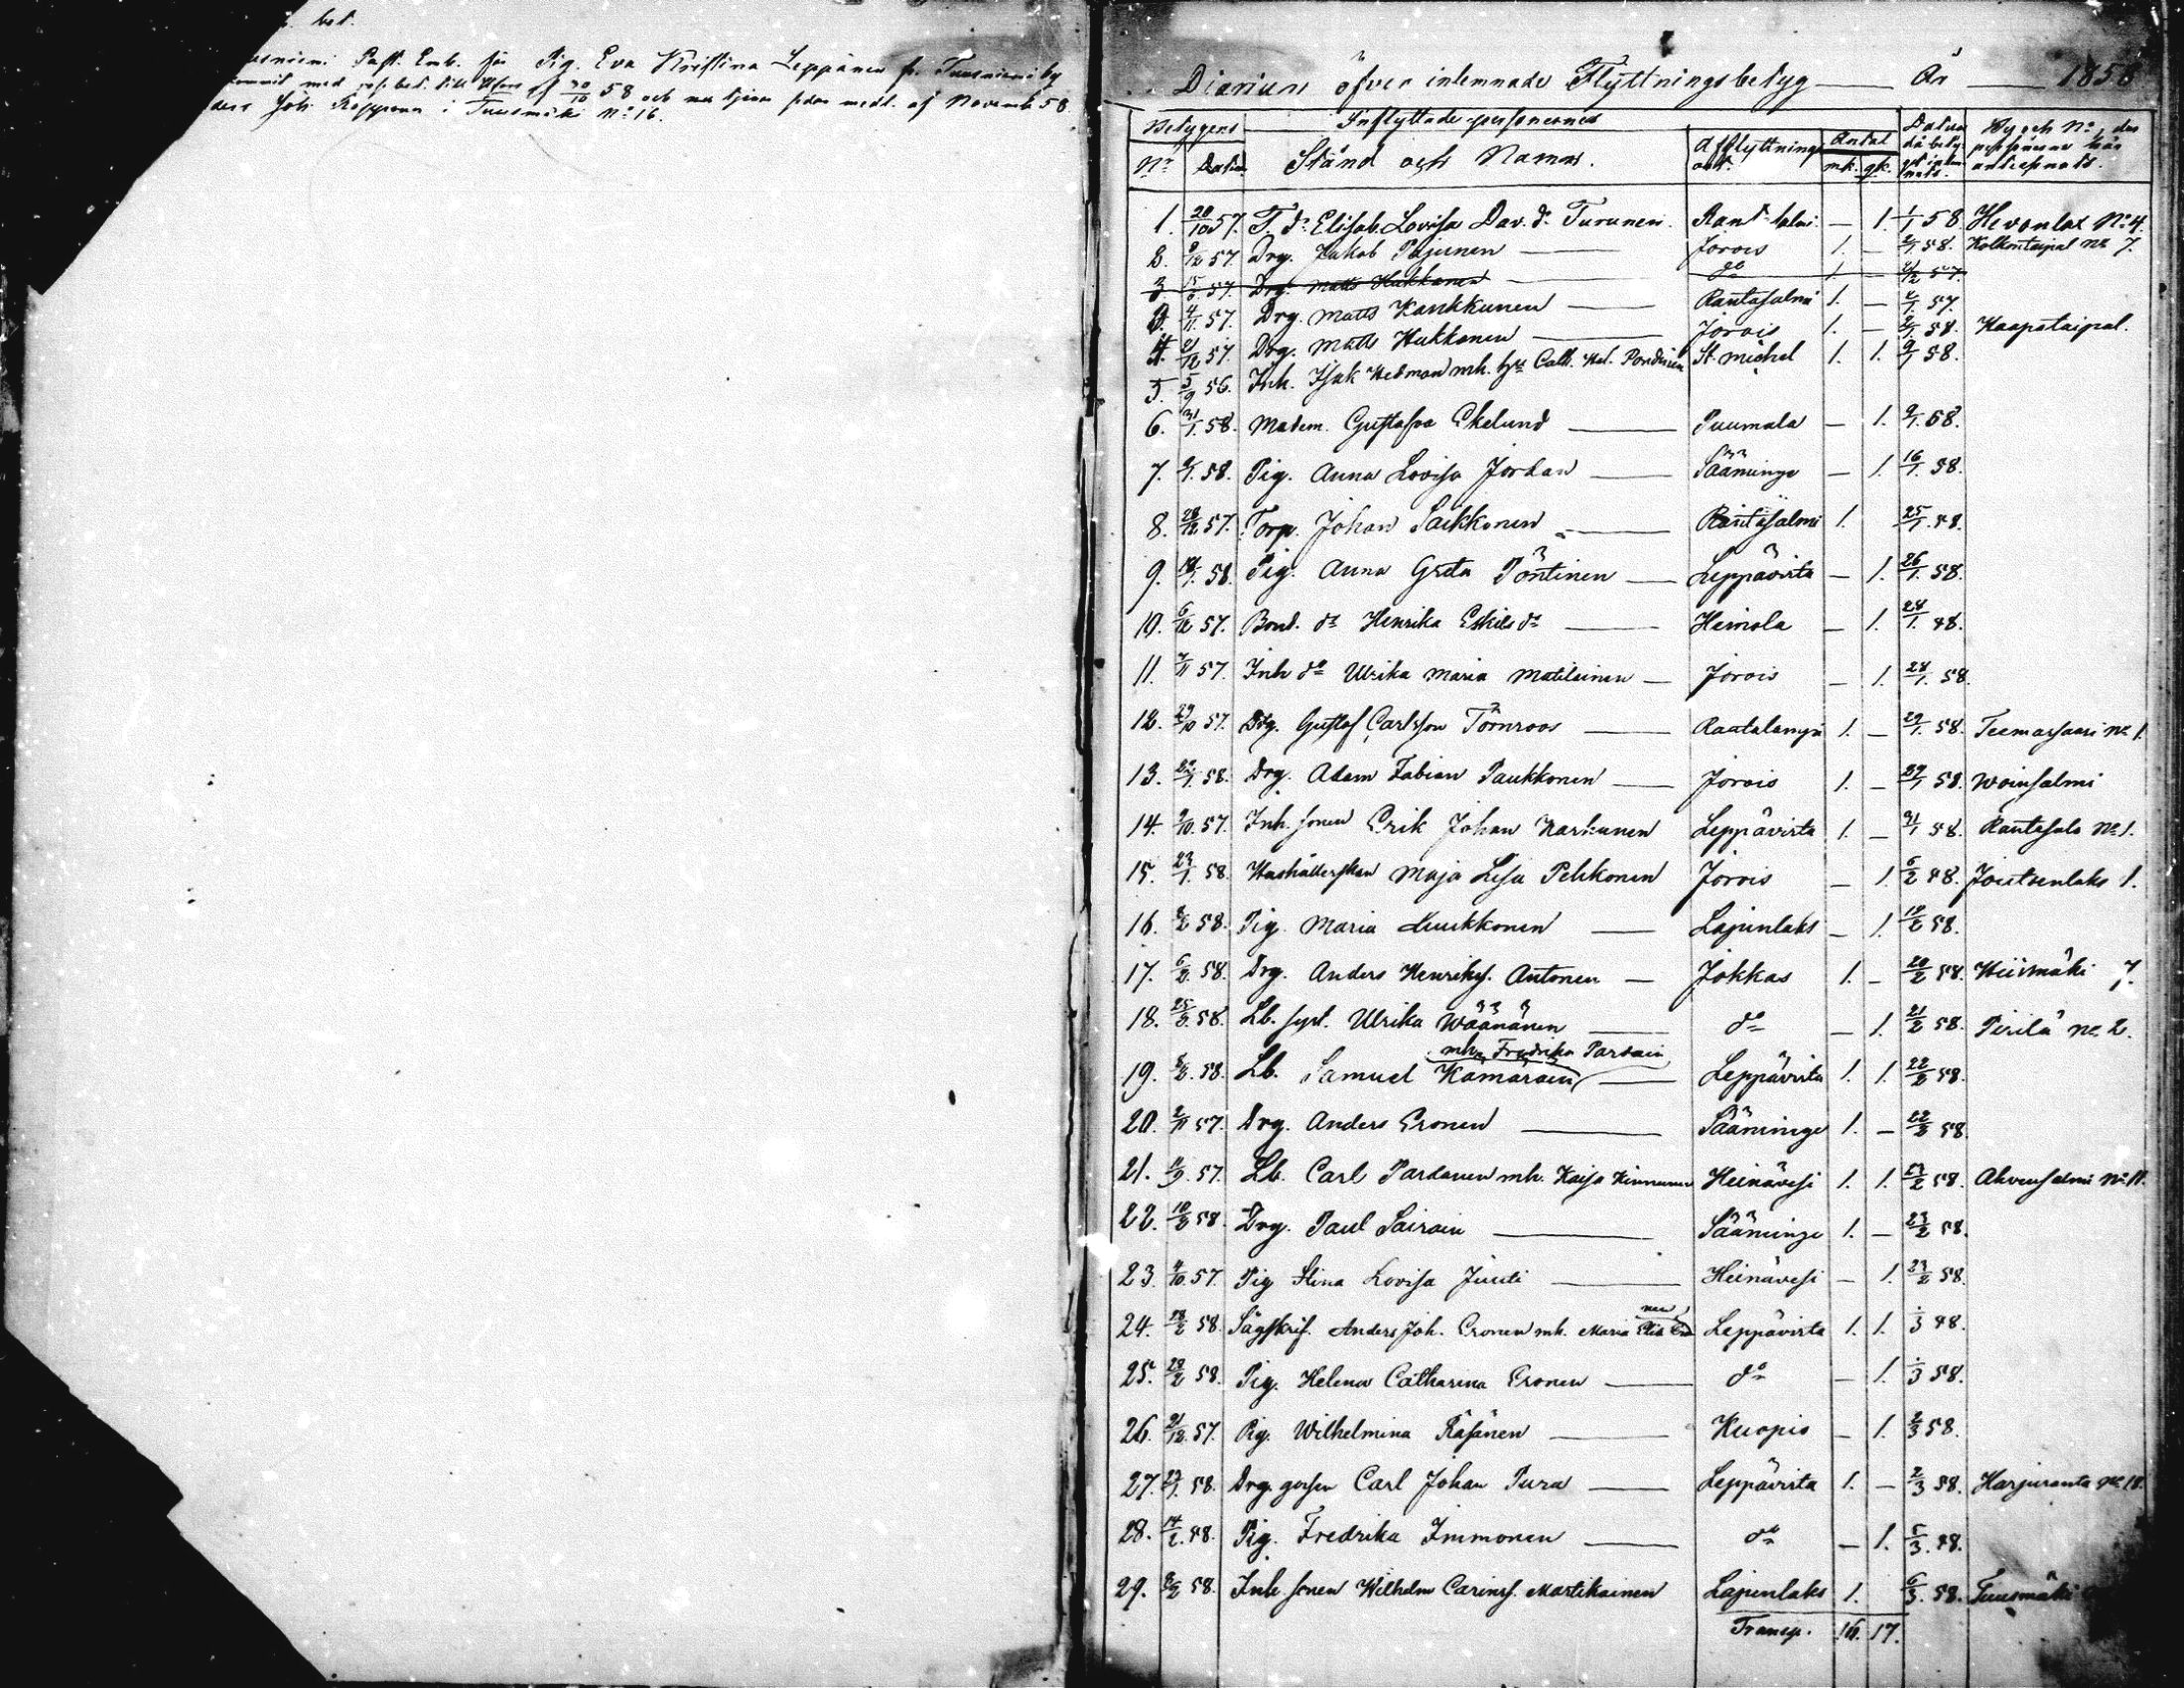 bet.
Past. Emb. för Pig. Eva Kristina Leppänen fr. Tuusniemi by
med till 30/10 58 och nu tjenar sedan medl. af Novemb 58
Joh. i Tuusmäki No 16.
Diarium öfver inlemnade Flyttningsbetyg — År — 1858
Betygens Inflyttade personernes Afflyttnings ort. Antal Datum då bety- get inlem- nats. By och No, der personerne här antecknats.
No Datum Stånd och Namn. mk. qk.
1. 20/10 57. T. dr Elisab. Lovisa Dav. dr Turunen. Rantasalmi — 1. 1/1 58 Hevonlax No 4.
2. 9/12 57. Drg. Jakob Pajunen — Jorois 1. — 2/1 58. Kolkontaipal No 7.
3. 15/ 57. Drg. Matts Hukkanen do 1 57.
3. 4/11 57. Drg. Matts Kaukkunen — Rantasalmi 1. — 2/1 57.
4. 21/12 57. Drg. Matts Hukkanen — Jorois 1. — 2/1 58. Kaapataipal.
5. 5/9 56. Inh. Isak Hedman mh. hu Cath. Hel. St. Michel 1. 1. 9/1 58.
6. 31/1. 58. Madem. Gustafva Ekelund — Puumala — 1. 9/1. 58.
7. 58. Pig. Anna Lovisa Jordan — Sääminge — 1. 16/1. 58.
8. 28/12 57. Torp. Johan Paukkonen — Rantasalmi 1. 25/1. 48.
9. 18/1. 58. Pig. Anna Greta Pöntinen — Leppävirta — 1. 26/1. 58.
10. 6/12 57. Bond. dr Henrika Eskils dr — Heinola — 1. 28/1. 48.
11. 7/11 57. Inh dr Ulrika Maria Matilainen — Jorois — 1. 28/1. 58.
12. 29/10 57. Drg. Gustaf Carlsson Törnroos — Rautalampi 1. — 29/1. 58. Teemassaari No 1.
13. 29/1. 58. Drg. Adam Fabian Paukkonen — Jorois 1. — 29/1 58. Woinsalmi
14. 9/10. 57. Inh. sonen Erik Johan Karhunen Leppävirta 1. — 31/1 58. Rantasalo No 1.
15. 23/1. 58. Hushållerskan Maja Lisa Pelkonen Jorois — 1. 6/2 48. Joutsenlaks 1.
16. 8/2 58. Pig Maria Luukkonen — Lapinlaks — 1. 19/2 58.
17. 6/2. 58. Drg. Anders Henriks. Antonen — Jokkas 1. — 20/2 58. Hiismäki 7.
18. 25/ 58. Lb. Ulrika Wäänänen — do — 1. 21/2 58. Pirilä No 2.
mh. Fredrika Pardain
19. 8/2. 58. Lb. Samuel Kämäräin — Leppävirta 1. 1. 22/2 58.
20. 2/11 57. Drg. Anders Eronen — Sääminge 1. — 22/2 58.
21. 11/9. 57. Lb. Carl Pardanen mh. Kaisa Kinnunen Heinävesi 1. 1. 23/2 58. Ahvensalmi No 11.
22. 10/2 58. Drg. Paul Sairain — Sääminge 1. — 23/2 58.
23. 4/10. 57. Pig Stina Lovisa Juuti — Heinävesi — 1. 23/2 58.
24. 28/2 58. Sågskrif. Anders Joh. Eronen mh. Maria Leppävirta 1. 1. 1/3 48.
25. 28/2 58. Pig. Helena Catharina Eronen — do — 1. 1/3 58.
26. 21/12. 57. Pig. Wilhelmina Räsänen — Kuopio — 1. 2/3 58.
27. 27/1. 58. Drg. gossen Carl Johan Pura — Leppävirta 1. — 2/3 58. Harjuranta No 18.
28. 14/2. 48. Pig. Fredrika Immonen — do — 1. 5/3. 48.
29. 8/2 58. Inh. sonen Wilhelm Carins. Martikainen Lapinlaks 1. 6/3. 58. Tuusmäki
Transp. 16. 17.